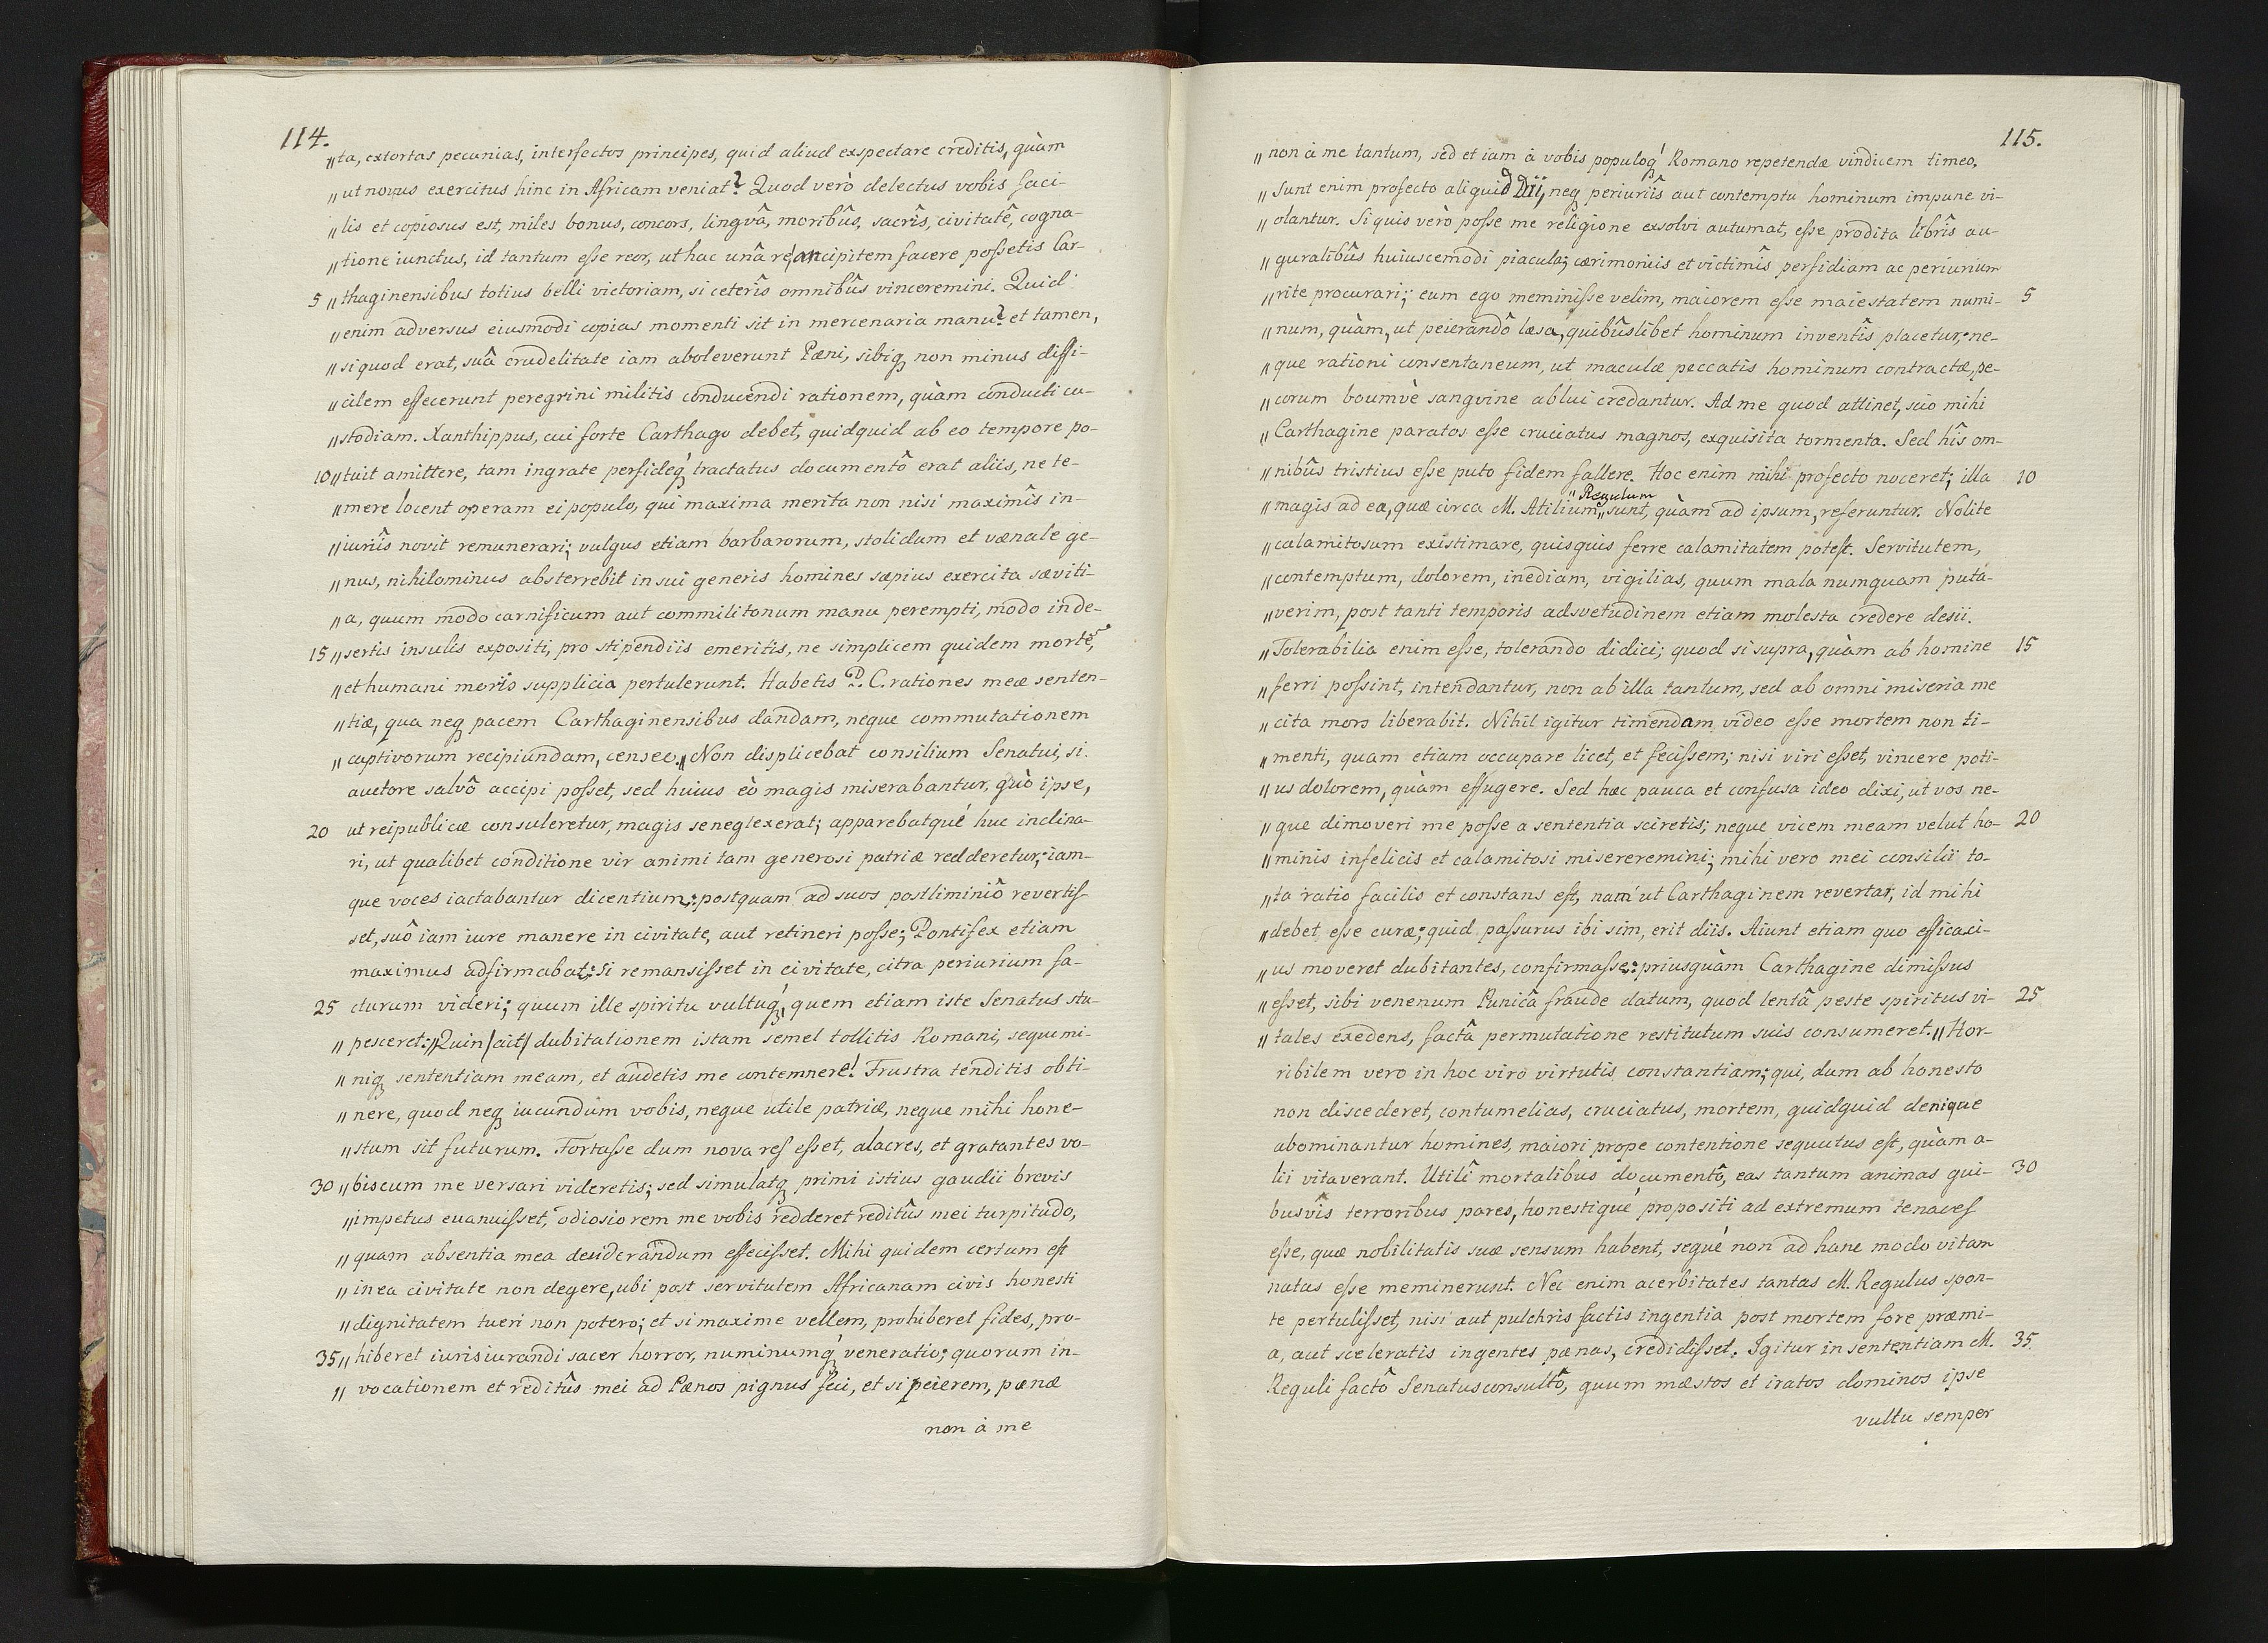 114.
„ta, extortas pecunias, interfectos principes, quid aliud exspectare creditis, quàm
„ut novus exercitus hinc in Africam veniat? Quod verò delectus vobis faci-
„lis et copiosus est, miles bonus, concors, lingvâ, moribûs, sacrîs, civitatê, cogna-
„tione iunctus, id tantum esse reor, ut hac unâ re ancipitem facere possetis Car-
5 „thaginensibus totius belli victoriam, si ceterîs omnibûs vinceremini. Quid
„enim adversus eiusmodi copias momenti sit in mercenaria manu? et tamen,
„si quod erat, suâ crudelitate iam aboleverunt Pœni, sibiq; non minus diffi-
„cilem effecerunt peregrini militis conducendi rationem, quàm conducti cu-
„stodiam. Xanthippus, cui forte Carthago debet, quidquid ab eo tempore po-
10 „tuit amittere, tam ingrate perfideq́; tractatus documentô erat aliis, ne te-
„mere locent operam ei populo, qui maxima merita non nisi maximîs in-
„iuriîs novit remunerari; vulgus etiam barbarorum, stolidum et vænale ge-
„nus, nihilominus absterrebit in sui generis homines sæpius exercita sæviti-
„a, quum modo carnificum aut commilitonum manu perempti, modo in de-
15 „sertis insulis expositi, pro stipendiis emeritis, ne simplicem quidem mortē,
„et humani moris supplicia pertulerunt. Habetis P. C. rationes meæ senten-
„tiæ, qua neq; pacem Carthaginensibus dandam, neque commutationem
„captivorum recipiundam, censeo.„ Non displicebat consilium Senatui, si
auctore salvô accipi posset, sed huius eò magis miserabantur, quò ipse,
20 ut reipublicæ consuleretur, magis se neglexerat; apparebatqué huc inclina-
ri, ut qualibet conditione vir animi tam generosi patriæ redderetur; iam-
que voces iactabantur dicentium: postquam ad suos postliminiô revertis-
set, suô iam iure manere in civitate, aut retineri posse; Pontifex etiam
maximus adfirmabat: si remansisset in civitate, citra periurium fa-
25 cturum videri; quum ille spiritu vultuq́;, quem etiam iste Senatus stu-
„pesceret: „Quin /ait/ dubitationem istam semel tollitis Romani, sequimi-
„niq; sententiam meam, et audetis me contemnere! Frustra tenditis obti-
„nere, quod neq; iucundum vobis, neque utile patriæ, neque mihi hone-
„stum sit futurum. Fortasse dum nova res esset, alacres, et gratantes vo-
30 „biscum me versari videretis; sed simulatq; primi istius gaudii brevis
„impetus evanuisset, odiosiorem me vobis redderet reditûs mei turpitudo,
„quam absentia mea desiderandum effecisset. Mihi quidem certum est
„in ea civitate non degere, ubi post servitutem Africanam civis honesti
„dignitatem tueri non potero; et si maxime vellem, prohiberet fides, pro-
35 „hiberet iurisiurandi sacer horror, numinumq́; veneratio; quorum in-
„vocationem et reditûs mei ad Pœnos pignus feci, et si peierem, pœnæ
non à me
115.
„non à me tantum, sed etiam à vobis populoq́; Romano repetendæ vindicem timeo.
„Sunt enim profecto aliquid Dii, neq; periuriîs aut contemptu hominum impune vi-
„olantur. Si quis verò posse me religione exsolvi autumat, esse prodita librîs au-
„guralibûs huiuscemodi piacula; cærimoniis et victimîs perfidiam ac periurium
„rite procurari; eum ego meminisse velim, maiorem esse maiestatem numi- 5
„num, quàm, ut peierandô læsa, quibûslibet hominum inventîs placetur; ne-
„que rationi consentaneum, ut maculæ peccatis hominum contractæ, pe-
„corum boumvè sangvine ablui credantur. Ad me quod attinet, scio mihi
„Carthagine paratos esse cruciatus magnos, exquisita tormenta. Sed hîs om-
„nibûs tristius esse puto fidem fallere. Hoc enim mihi profecto noceret; illa 10
„Regulum
„magis ad ea, quæ circa M. Atilium„ sunt, quàm ad ipsum, referuntur. Nolite
„calamitosum existimare, quisquis ferre calamitatem potest. Servitutem,
„contemptum, dolorem, inediam, vigilias, quum mala numquam puta-
„verim, post tanti temporis adsvetudinem etiam molesta credere desii.
„Tolerabilia enim esse, tolerando didici; quod si supra, quàm ab homine 15
„ferri possint, intendantur, non ab illa tantum, sed ab omni miseria me
„cita mors liberabit. Nihil igitur timendam video esse mortem non ti-
„menti, quam etiam occupare licet, et fecissem; nisi viri esset, vincere poti-
„us dolorem, quàm effugere. Sed hæc pauca et confusa ideo dixi, ut vos ne-
„que dimoveri me posse a sententia sciretis; neque vicem meam velut ho- 20
„minis infelicis et calamitosi misereremini; mihi vero mei consilii to-
„ta ratio facilis et constans est, nam ut Carthaginem revertar, id mihi
„debet esse curæ; quid passurus ibi sim, erit diis. Aiunt etiam quo efficaci-
„us moveret dubitantes, confirmasse: priusquàm Carthagine dimissus
„esset, sibi venenum Punicâ fraude datum, quod lentâ peste spiritus vi- 25
„tales exedens, factâ permutatione restitutum suis consumeret.„ Hor-
ribilem vero in hoc viro virtutis constantiam; qui, dum ab honesto
non discederet, contumelias, cruciatus, mortem, quidquid denique
abominantur homines, maiori prope contentione sequutus est, quàm a-
lii vitaverant. Utilî mortalibus documentô, eas tantum animas qui- 30
busvîs terroribus pares, honestiqué propositi ad extremum tenaces
esse, quæ nobilitatis suæ sensum habent, sequé non ad hanc modo vitam
natas esse meminerunt. Nec enim acerbitates tantas M. Regulus spon-
te pertulisset, nisi aut pulchris factis ingentia post mortem fore præmi-
a, aut sceleratis ingentes pœnas, credidisset. Igitur in sententiam M. 35
Reguli factô Senatusconsultô, quum mæstos et iratos dominos ipse
vultu semper